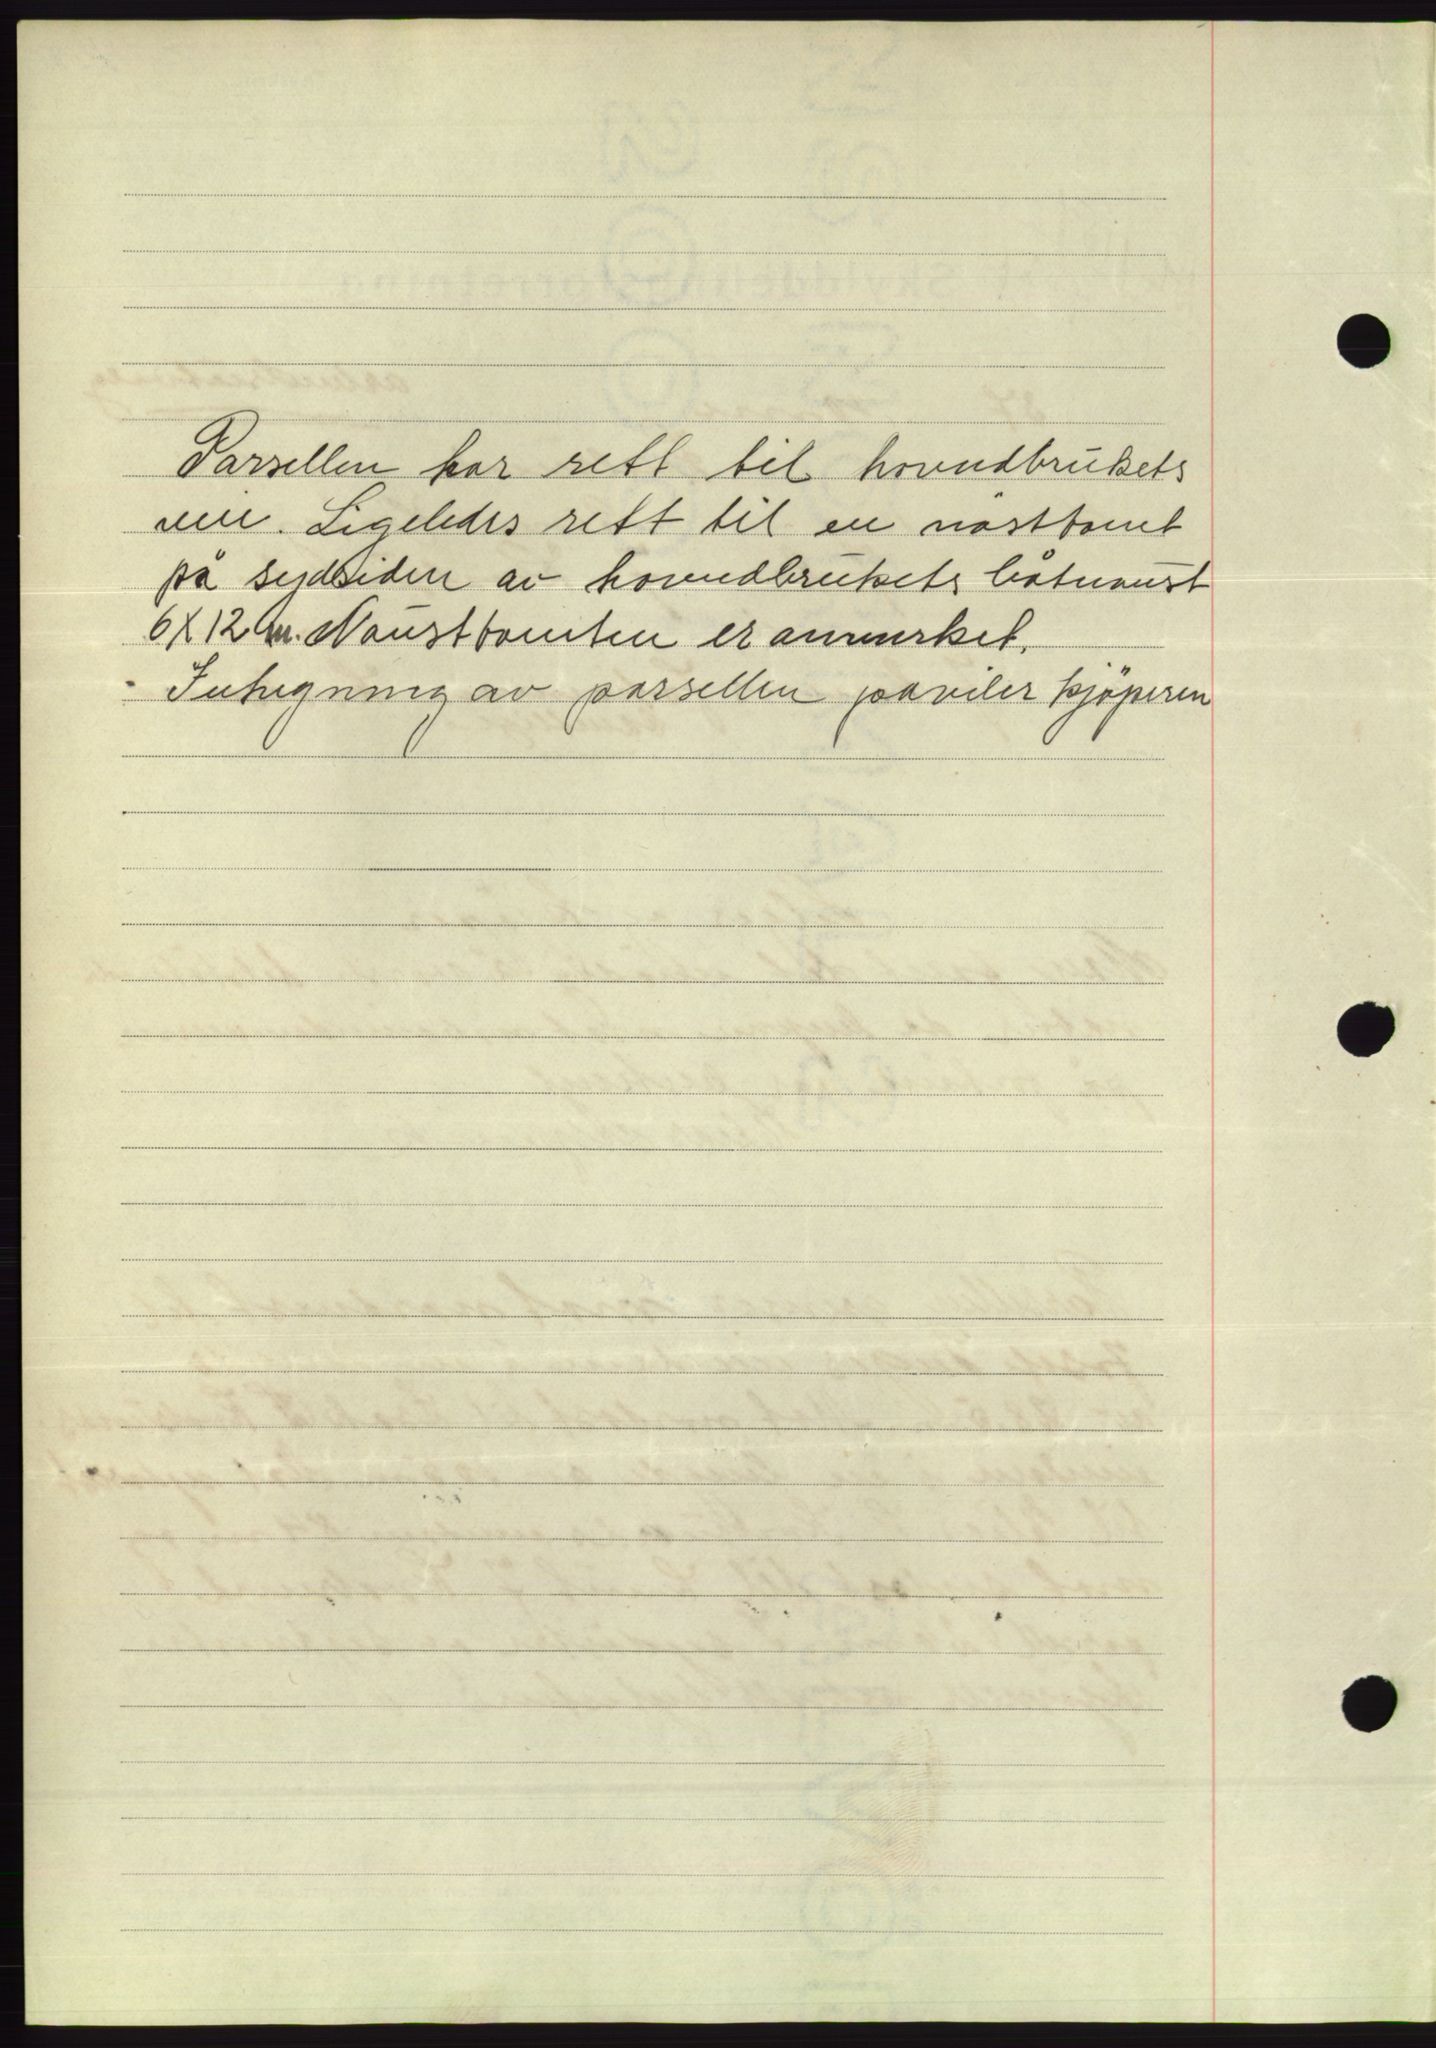 Parsellen har rett til hovudbrukets
veie. Ligeledes rett til en nösttomt
på sydsiden av hovudbrukets båtnaust
6X12 m. Nausttomten er avmerket.
Inhegning av parsellen påviler kjöperen